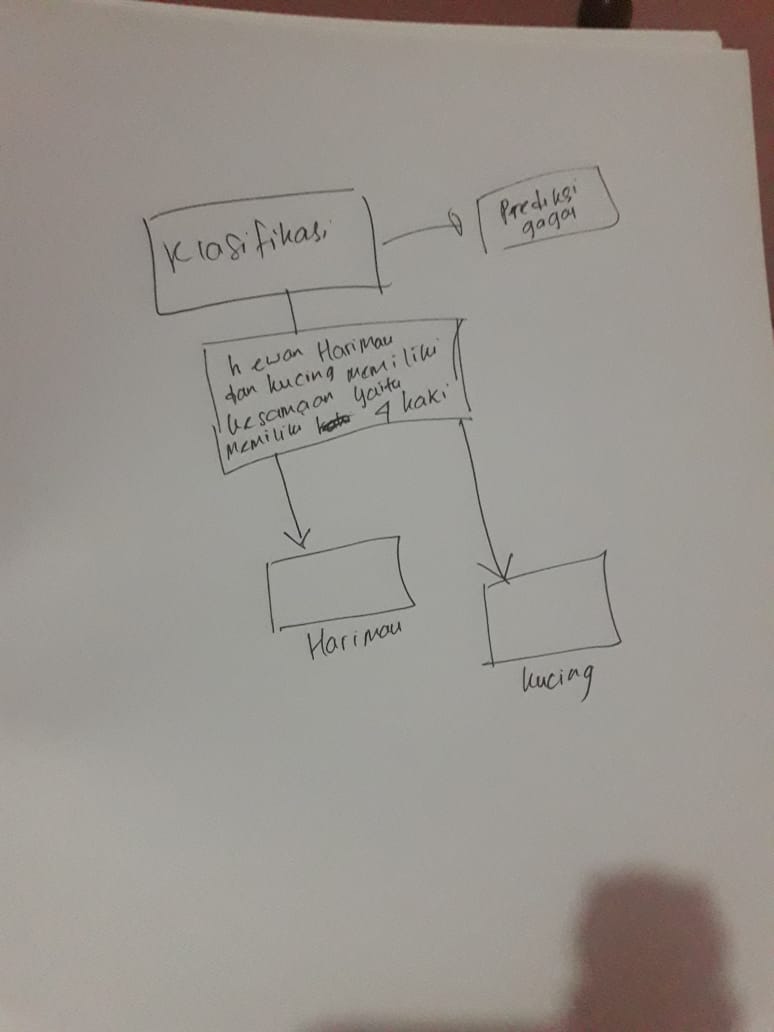 Klasifikasi
Prediksi
gagal
hewan Harimau
dan kucing memiliki
kesamaan yaitu
memiliki 4 kaki
Harimau
kucing